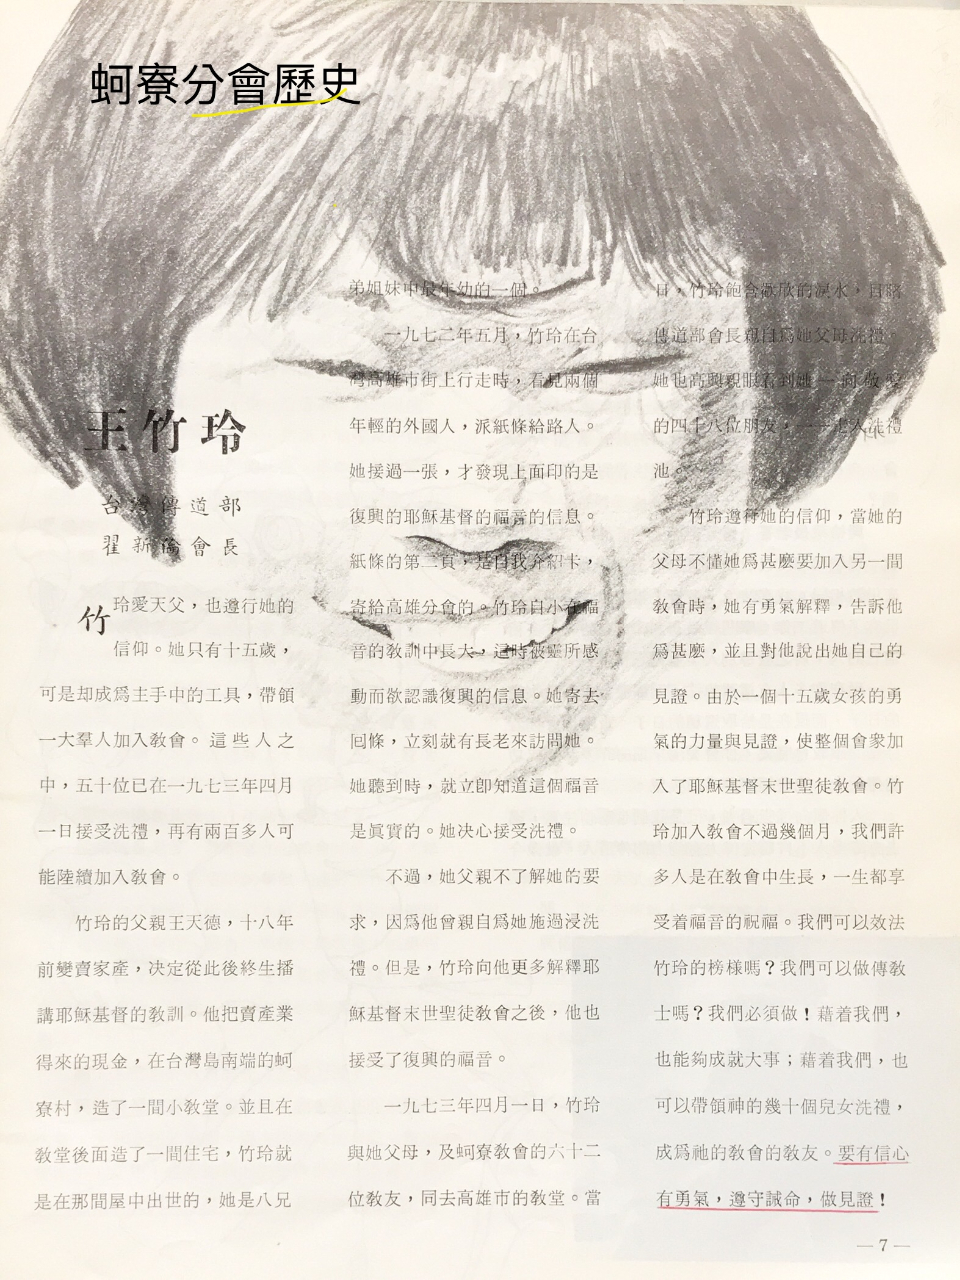 蚵寮分會歷史
王竹玲
台灣傳道部
翟新倫會長
竹玲愛天父，也遵行她的
信仰。她只有十五歲，
可是却成爲主手中的工具，帶領
一大羣人加入教會。這些人之
中，五十位已在一九七三年四月
一日接受洗禮，再有兩百多人可
能陸續加入教會。
竹玲的父親王天德，十八年
前變賣家產，决定從此後終生播
講耶穌基督的教訓。他把賣產業
得來的現金，在台灣島南端的蚵
寮村，造了一間小教堂。並且在
教堂後面造了一間住宅，竹玲就
是在那間屋中出世的，她是八兄
弟姐妹中最年幼的一個。
一九七二年五月，竹玲在台
灣高雄市街上行走時，看見兩個
年輕的外國人，派紙條給路人。
她接過一張，才發現上面印的是
復興的耶穌基督的福音的信息。
紙條的第二頁，是自我介紹卡，
寄給高雄分會的。竹玲自小在福
音的教訓中長大，這時被靈所感
動而欲認識復興的信息。她寄去
回條，立刻就有長老來訪問她。
她聽到時，就立卽知道這個福音
是眞實的。她决心接受洗禮。
不過，她父親不了解她的要
求，因爲他曾親自爲她施過浸洗
禮。但是，竹玲向他更多解釋耶
穌基督末世聖徒教會之後，他也
接受了復興的福音。
一九七三年四月一日，竹玲
與她父母，及蚵寮教會的六十二
位教友，同去高雄市的教堂。當
日，竹玲飽含歡欣的淚水，目睹
傳道部會長親自爲她父母洗禮
她也高興親眼看到她一向敬愛
的四十八位朋友，一一走入洗禮
池。
竹玲遵行她的信仰，當她的
父母不懂她爲甚麼要加入另一間
教會時，她有勇氣解釋，告訴他
爲甚麼，並且對他說出她自己的
見證。由於一個十五歲女孩的勇
氣的力量與見證，使整個會衆加
入了耶穌基督末世聖徒教會。竹
玲加入教會不過幾個月，我們許
多人是在教會中生長，一生都享
受着福音的祝福。我們可以效法
竹玲的榜樣嗎？我們可以做傳教
士嗎？我們必須做！藉着我們，
也能夠成就大事；藉着我們，也
可以帶領神的幾十個兒女洗禮，
成爲祂的教會的教友。要有信心
有勇氣，遵守誡命，做見證！
— 7 —